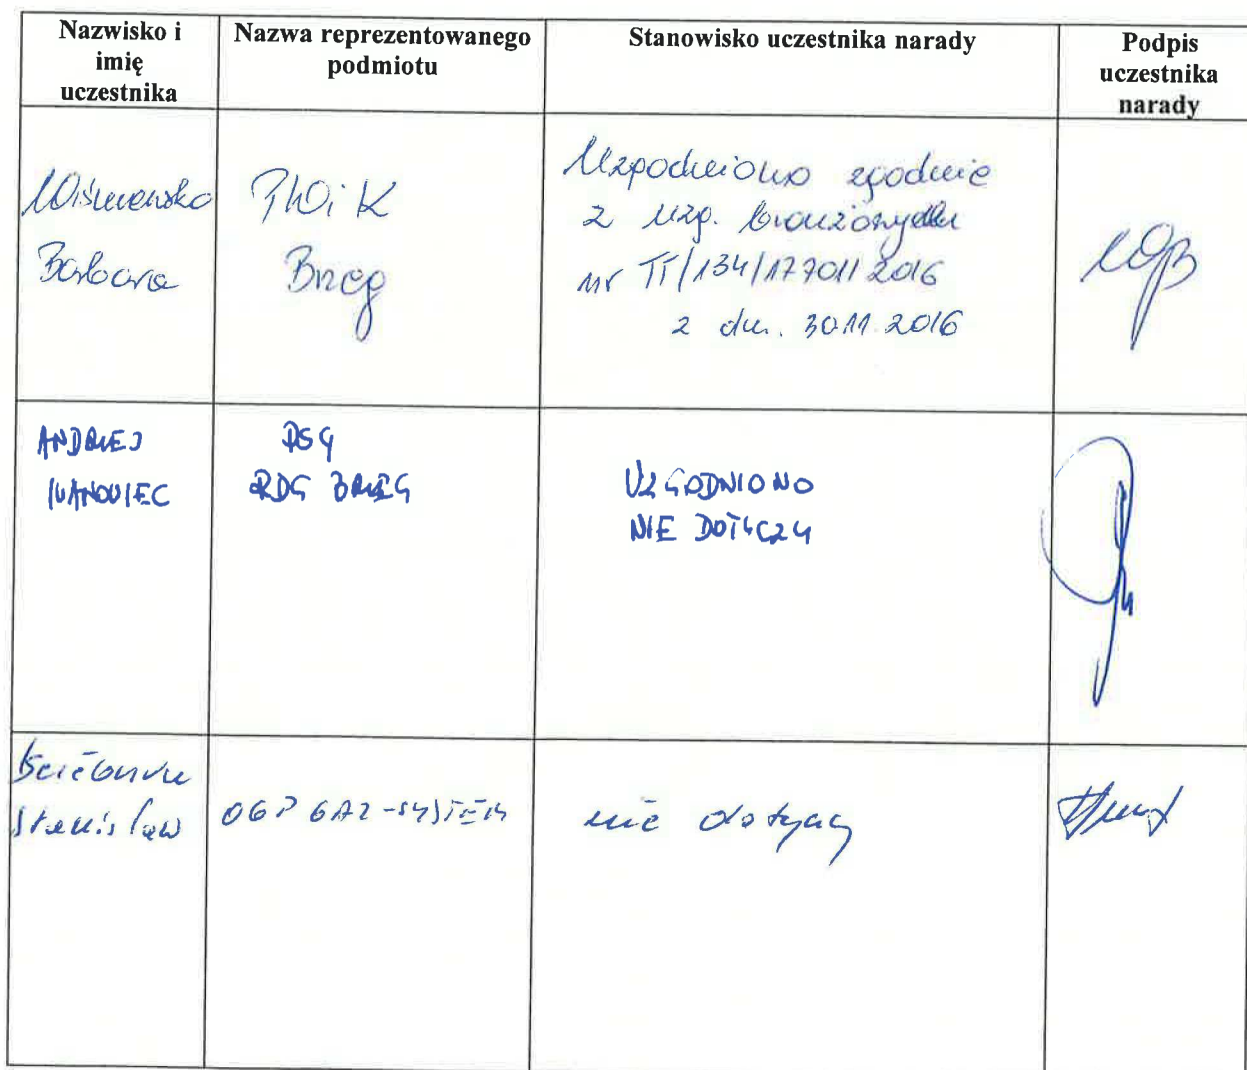 Nazwisko i
imię
uczestnika
Nazwa reprezentowanego
podmiotu
Stanowisko uczestnika narady
Podpis
uczestnika
narady
Barbara
PWiK
Brzeg
Uzgodniono zgodnie
z uzg. branżowym
nr TT/134/17701/2016
z dn. 30.11.2016
ANDRZEJ
IWANOWIEC
PSG
RDG BRZEG
UZGODNIONO
NIE DOTYCZY
Stanisław
OGP GAZ-SYSTEM
nie dotyczy